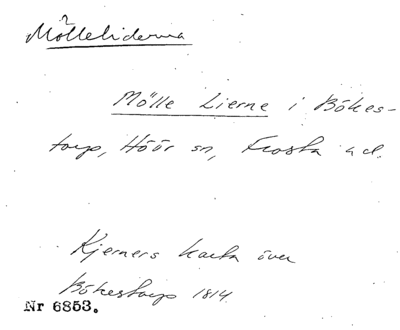 Mölleliderna
Mölle Lierne i Bökes-
torp, Höör sn, Frosta hd.
Kjerners karta över
Bökestorp 1814.
Nr 6853.